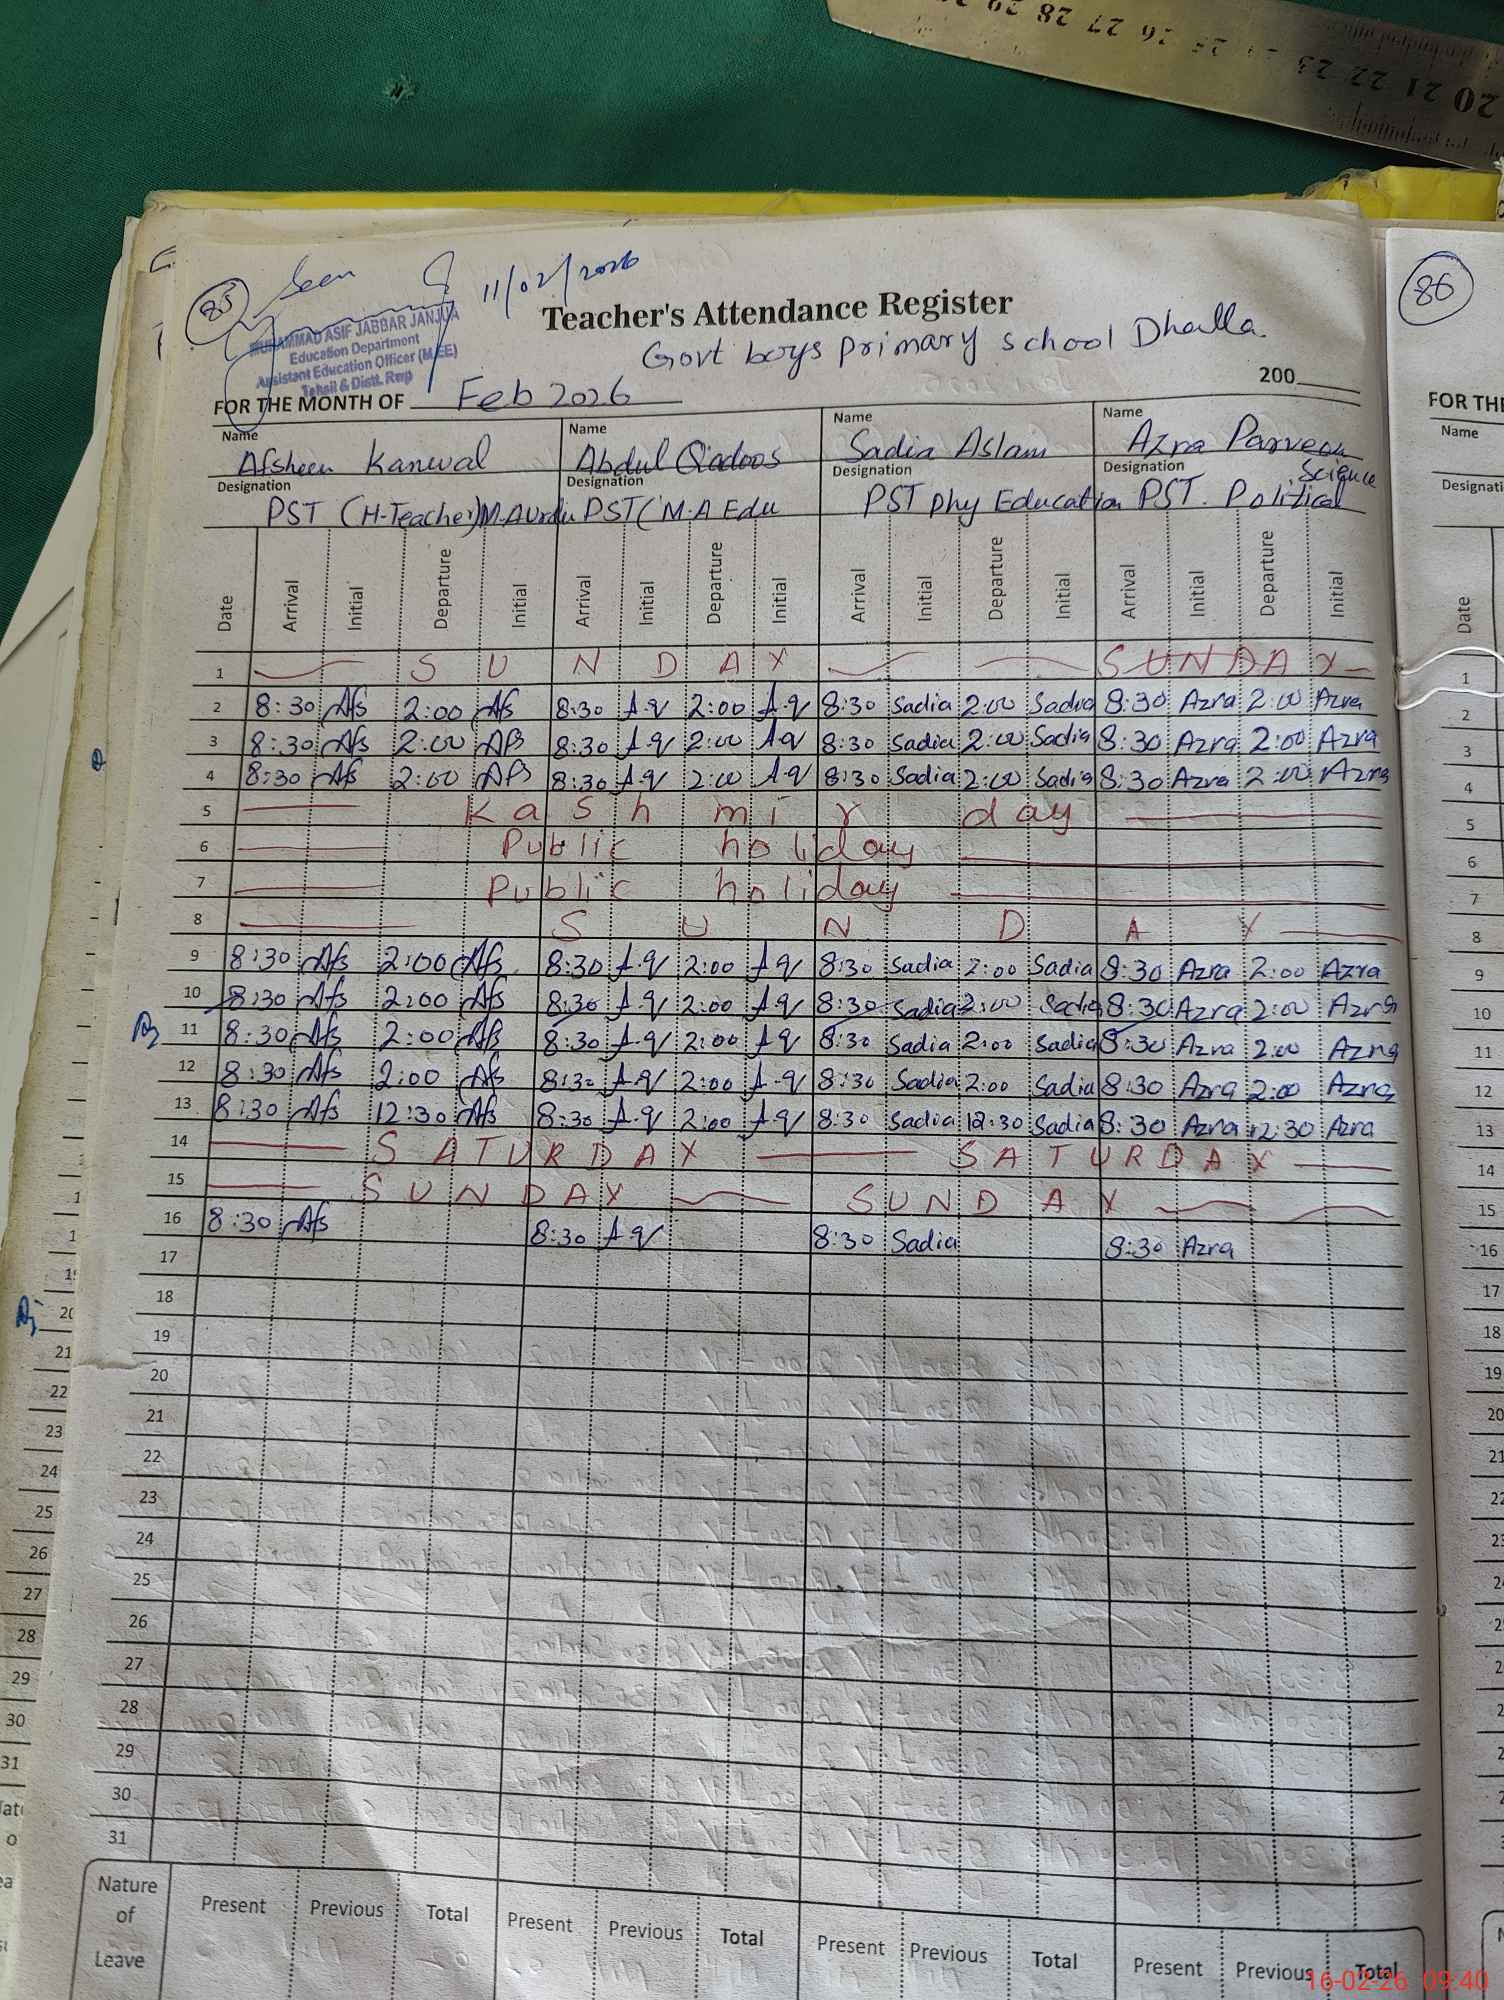 20 21 22 23 25 26 27 28 29
85 Seen 11/02/2026
Teacher's Attendance Register
MUHAMMAD ASIF JABBAR JANJUA
Education Department
Assistant Education Officer (M.EE)
Tehsil & Distt. Rwp
Govt boys primary school Dhalla.
200
FOR THE MONTH OF Feb 2026
Name Name Name Name
Afsheen Kanwal Abdul Qadoos Sadia Aslam Azra Parveen
Designation Designation Designation Designation
PST (H-Teacher) M.A Urdu PST (M.A Edu PST phy Education PST. Political Science
Date Arrival Initial Departure Initial Arrival Initial Departure Initial Arrival Initial Departure Initial Arrival Initial Departure Initial
1 SUNDAY SUNDAY
2 8:30 Afs 2:00 Afs 8:30 A.q 2:00 A.q 8:30 Sadia 2:00 Sadia 8:30 Azra 2:00 Azra
3 8:30 Afs 2:00 Afs 8:30 A.q 2:00 A.q 8:30 Sadia 2:00 Sadia 8:30 Azra 2:00 Azra
4 8:30 Afs 2:00 Afs 8:30 A.q 2:00 A.q 8:30 Sadia 2:00 Sadia 8:30 Azra 2:00 Azra
5 Kashmir day
6 Public holiday
7 Public holiday
8 SUNDAY
9 8:30 Afs 2:00 Afs 8:30 A.q 2:00 A.q 8:30 Sadia 2:00 Sadia 8:30 Azra 2:00 Azra
10 8:30 Afs 2:00 Afs 8:30 A.q 2:00 A.q 8:30 Sadia 2:00 Sadia 8:30 Azra 2:00 Azra
11 8:30 Afs 2:00 Afs 8:30 A.q 2:00 A.q 8:30 Sadia 2:00 Sadia 8:30 Azra 2:00 Azra
12 8:30 Afs 2:00 Afs 8:30 A.q 2:00 A.q 8:30 Sadia 2:00 Sadia 8:30 Azra 2:00 Azra
13 8:30 Afs 12:30 Afs 8:30 A.q 2:00 A.q 8:30 Sadia 12:30 Sadia 8:30 Azra 12:30 Azra
14 SATURDAY SATURDAY
15 SUNDAY SUNDAY
16 8:30 Afs 8:30 A.q 8:30 Sadia 8:30 Azra
17
18
19
20
21
22
23
24
25
26
27
28
29
30
31
Nature of Leave Present Previous Total Present Previous Total Present Previous Total Present Previous Total
86
FOR THE
Name
Designati
Date
1
2
3
4
5
6
7
8
9
10
11
12
13
14
15
16
17
18
19
20
21
22
16-02-26 09:40